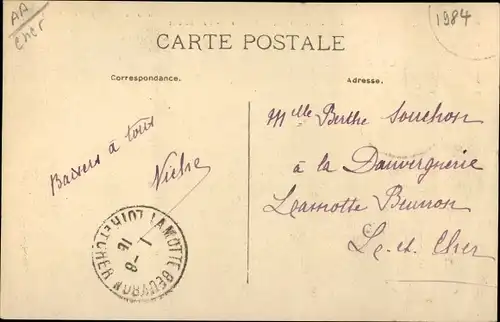 AA
Cher
1984
CARTE POSTALE
Correspondance.
Adresse.
Baisers à tous
Mlle Berthe Souchon
à la Dauvergnerie
Lamotte Beuvron
L. et. Cher
LAMOTTE BEUVRON
LOIR ET CHER
1-8
16